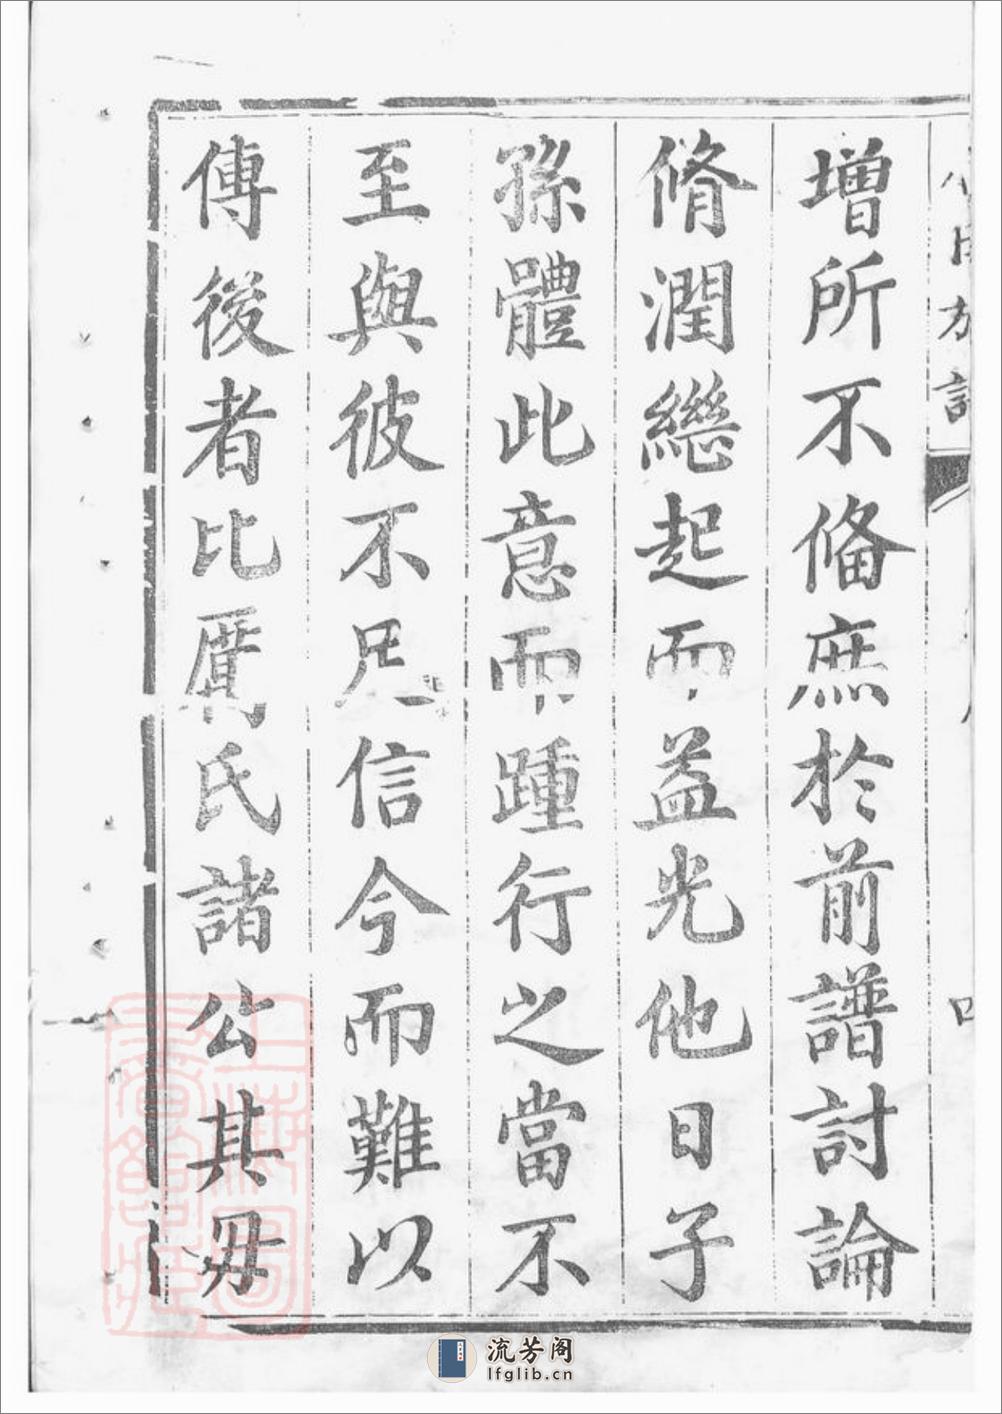 增所不備庶於前譜討論
脩潤繼起而益光他日子
孫體此意而踵行之當不
至與彼不尺信今而難以
傳後者比厲氏諸公其毋
流芳阁
lfglib.cn